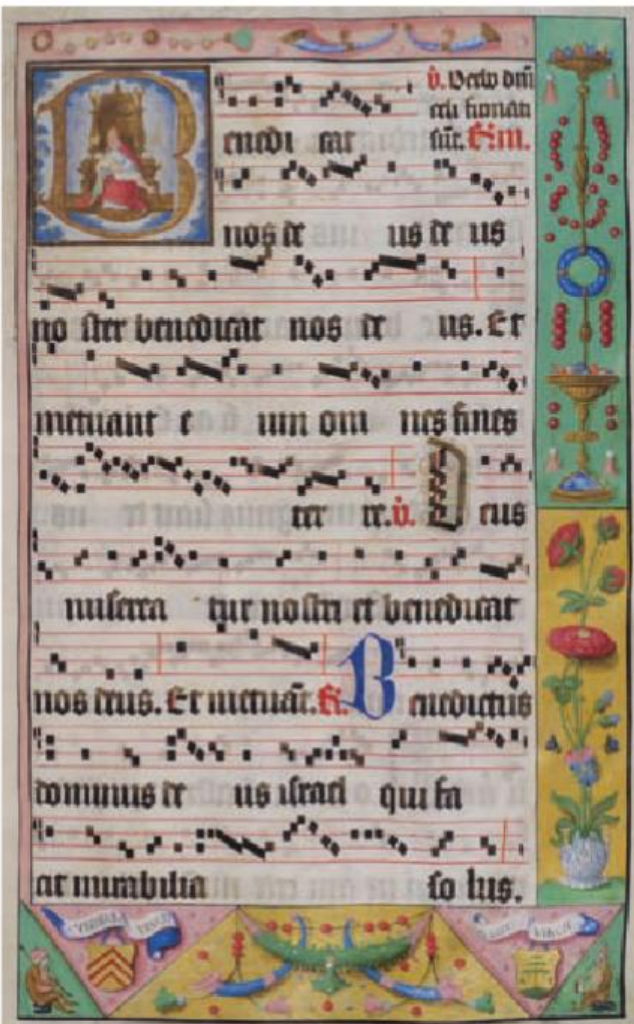 ℣. Verbo dn̄i
celi firmati
sūt. ℟. iii.
Benedi cat
nos de us de us
no ster benedicat nos de us. Et
metuant e um om nes fines
ter re. ℣. Deus
miserea tur nostri et benedicat
nos deus. Et metuāt. ℟. Benedictus
dominus de us israel qui fa
cit mirabilia so lus.